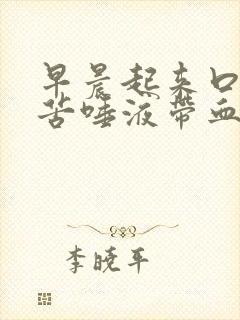 早晨起来口
苦唾液带血
李晓平